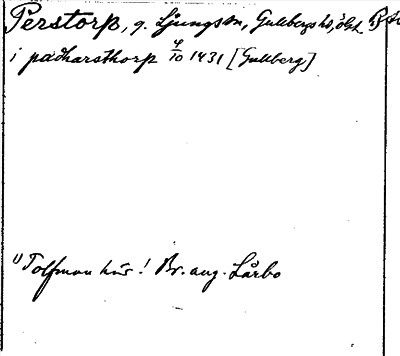 Perstorp, g. Ljungs sn, Gullbergs hd, Ögl.
i padharsthorp 4/10 1431 [Gullberg]
1) Tolfman här! Br. ang. Lårbo